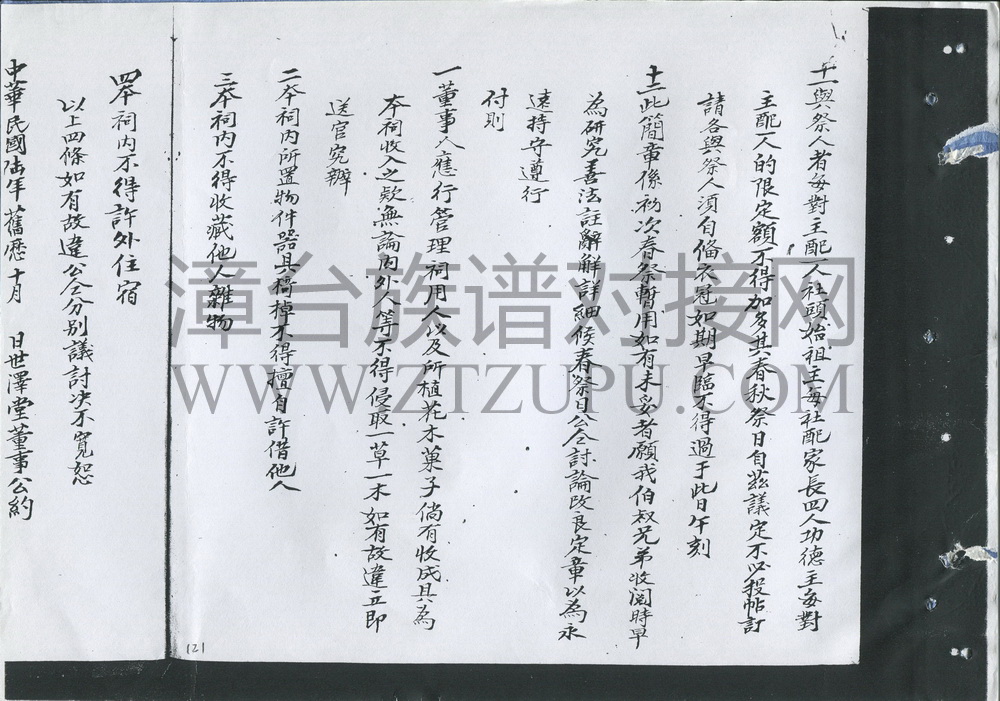 十一與祭人者每對主配一人社頭始祖主每社配家長四人功德主每對
主配一人的限定額不得加多其春秋祭日自茲議定不必投帖訂
請各與祭人須自俻衣冠如期早臨不得過于此日午刻
十二此簡章係初次春祭暫用如有未妥者願我伯叔兄弟收閱時早
為研究善法註辭解詳細候春祭日公仝討論改良定章以為永
遠持守遵行
付則
一董事人應行管理祠用人以及所植花木菓子倘有收成具為
本祠收入之欵無論內外人等不得侵取一草一木如有故違立即
送官究辦
二本祠內所置物件器具椅棹不得擅自許借他人
三本祠內不得收藏他人雜物
四本祠內不得許外住宿
以上四條如有故違公仝分别議討决不寬恕
中華民國陆年舊歷十月 日世澤堂董事公約
121
漳台族谱对接网
WWW.ZTZUPU.COM